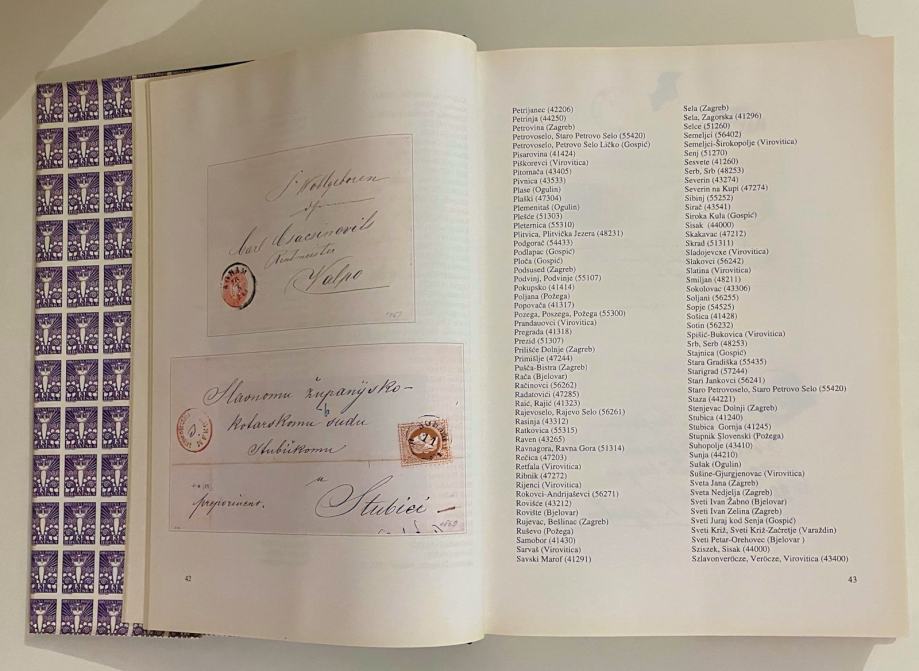 Wohlgeboren
Carl
Valpo
AGRAM
1867
Slavnomu županijsko-
kotarskomu sudu
Stubičkomu
u
Stubici
preporučeno.
AGRAM
1869
42
Petrijanec (42206)
Petrinja (44250)
Petrovina (Zagreb)
Petrovoselo, Staro Petrovo Selo (55420)
Petrovoselo, Petrovo Selo Ličko (Gospić)
Pisarovina (41424)
Piškorevci (Virovitica)
Pitomača (43405)
Pivnica (43533)
Plase (Ogulin)
Plaški (47304)
Plemenitaš (Ogulin)
Plešće (51303)
Pleternica (55310)
Plitvica, Plitvička Jezera (48231)
Podgorač (54433)
Podlapac (Gospić)
Ploča (Gospić)
Podsused (Zagreb)
Podvinj, Podvinje (55107)
Pokupsko (41414)
Poljana (Požega)
Popovača (41317)
Pozega, Poszega, Požega (55300)
Prandauovci (Virovitica)
Pregrada (41318)
Prezid (51307)
Prilišće Dolnje (Zagreb)
Primišlje (47244)
Pušča-Bistra (Zagreb)
Rača (Bjelovar)
Račinovci (56262)
Radatovići (47285)
Raić, Rajić (41323)
Rajevoselo, Rajevo Selo (56261)
Rasinja (43312)
Ratkovica (55315)
Raven (43265)
Ravnagora, Ravna Gora (51314)
Rečica (47203)
Retfala (Virovitica)
Ribnik (47272)
Rijenci (Virovitica)
Rokovci-Andrijaševci (56271)
Rovišće (43212)
Rovište (Bjelovar)
Rujevac, Bešlinac (Zagreb)
Ruševo (Požega)
Samobor (41430)
Sarvaš (Virovitica)
Savski Marof (41291)
Sela (Zagreb)
Sela, Zagorska (41296)
Selce (51260)
Semeljci (56402)
Semeljci-Širokopolje (Virovitica)
Senj (51270)
Sesvete (41260)
Serb, Srb (48253)
Severin (43274)
Severin na Kupi (47274)
Sibinj (55252)
Sirač (43541)
Siroka Kula (Gospić)
Sisak (44000)
Skakavac (47212)
Skrad (51311)
Sladojevcxe (Virovitica)
Slakovci (56242)
Slatina (Virovitica)
Smiljan (48211)
Sokolovac (43306)
Soljani (56255)
Sopje (54525)
Sošica (41428)
Sotin (56232)
Spišić-Bukovica (Virovitica)
Srb, Serb (48253)
Stajnica (Gospić)
Stara Gradiška (55435)
Starigrad (57244)
Stari Jankovci (56241)
Staro Petrovoselo, Staro Petrovo Selo (55420)
Staza (44221)
Stenjevac Dolnji (Zagreb)
Stubica (41240)
Stubica Gornja (41245)
Stupnik Slovenski (Požega)
Suhopolje (43410)
Sunja (44210)
Sušak (Ogulin)
Sušine-Gjurgjenovac (Virovitica)
Sveta Jana (Zagreb)
Sveta Nedjelja (Zagreb)
Sveti Ivan Žabno (Bjelovar)
Sveti Ivan Zelina (Zagreb)
Sveti Juraj kod Senja (Gospić)
Sveti Križ, Sveti Križ-Začretje (Varaždin)
Sveti Petar-Orehovec (Bjelovar )
Sziszek, Sisak (44000)
Szlavonverőcze, Verőcze, Virovitica (43400)
43